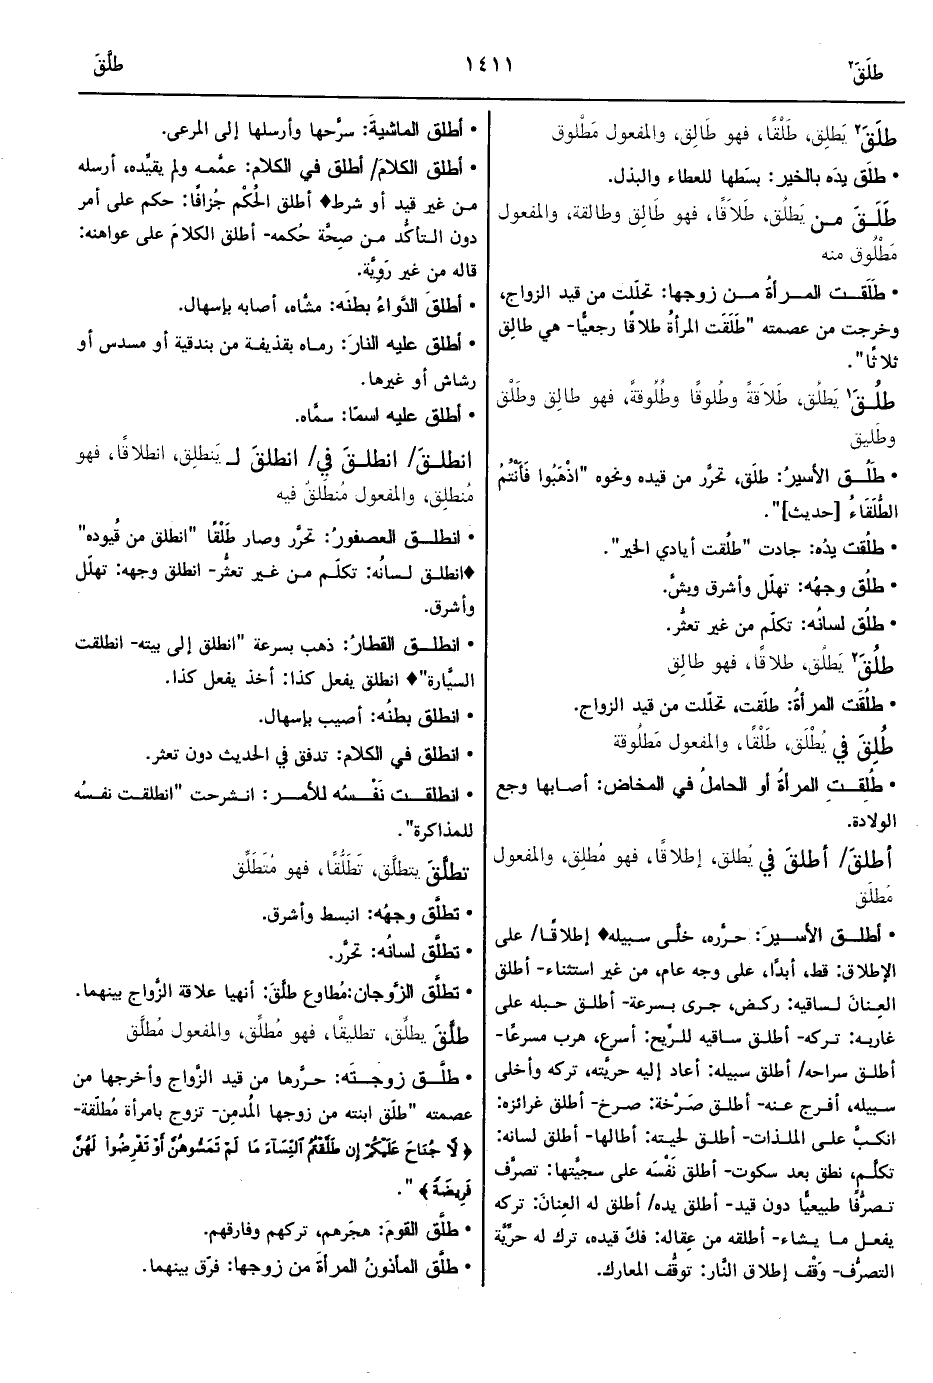 طلَقَ٢
١٤١١
طلَّقَ
طلَقَ٢ يَطلِق، طَلْقًا، فهو طَالِق، والمفعول مَطْلوق
• طلَق يدَه بالخير: بسَطها للعطاء والبذل.
طَلَقَ مـن يَطلُق، طَلاَقًا، فهو طَالِق وطالقة، والمفعول
مَطْلُوق منه
• طَلَقـت المـرأةُ مـن زوجها: تحلّلت من قيد الزواج،
وخرجت من عصمته "طَلَقَت المرأةُ طلاقًا رجعيًّا- هي طالِق
ثلاثًا".
طلُـقَ١ يَطلُق، طَلاَقةً وطُلوقًا وطُلُوقةً، فهو طالِق وطَلْق
وطَليق
• طَلُـق الأسيرُ: طلَق، تحرَّر من قيده ونحوه "اذْهَبُوا فَأَنْتُمُ
الطُّلَقَاءُ [حديث]".
• طلُقت يدُه: جادت "طلُقت أيادي الخير".
• طلُق وجهُه: تهلّل وأشرق وبشَّ.
• طلُق لسانُه: تكلّم من غير تعثُّر.
طلُقَ٢ يَطلُق، طلاقًا، فهو طالِق
• طلُقَت المرأةُ: طلَقت، تحلّلت من قيد الزواج.
طُلِقَ في يُطْلَق، طَلْقًا، والمفعول مَطلُوقة
• طُلِقـت المرأةُ أو الحاملُ في المخاض: أصابها وجع
الولادة.
أطلقَ/ أطلقَ في يُطلق، إطلاقًا، فهو مُطلِق، والمفعول
مُطلَق
• أطلـق الأسيـرَ: حـرَّره، خلّى سبيله♦ إطلاقًا/ على
الإطلاق: قط، أبدًا، على وجه عام، من غير استثناء- أطلق
العِنانَ لساقيه: ركض، جرى بسرعة- أطلق حبله على
غاربه: تركه- أطلق ساقيه للرِّيح: أسرع، هرب مسرعًا-
أطلق سراحه/ أطلق سبيله: أعاد إليه حريَّته، تركه وأخلى
سبيله، أفرج عنه- أطلق صَرْخة: صرخ- أطلق غرائزه:
انكبَّ على الملذات- أطلق لحيته: أطالها- أطلق لسانه:
تكلَّم، نطق بعد سكوت- أطلق نَفْسَه على سجيَّتها: تصرَّف
تصرُّفًا طبيعيًّا دون قيد- أطلق يده/ أطلق له العِنانَ: تركه
يفعل ما يشاء- أطلقه من عِقاله: فكّ قيده، ترك له حرِّيَّة
التصرُّف- وَقْف إطلاق النَّار: توقُّف المعارك.
• أطلق الماشيةَ: سرَّحها وأرسلها إلى المرعى.
• أطلق الكلامَ/ أطلق في الكلام: عمَّمه ولم يقيِّده، أرسله
من غير قيد أو شرط♦ أطلق الحُكْم جُزافًا: حكم على أمر
دون التأكُّد من صِحَّة حُكمه- أطلق الكلامَ على عواهنه:
قاله من غير رَويَّة.
• أطلقَ الدَّواءُ بطنَه: مشَّاه، أصابه بإسهال.
• أطلق عليه النارَ: رماه بقذيفة من بندقية أو مسدس أو
رشاش أو غيرها.
• أطلق عليه اسمًا: سمَّاه.
انطلـقَ/ انطلـقَ في/ انطلقَ لـ يَنطلِق، انطلاقًا، فهو
مُنطلِق، والمفعول مُنطلَقٌ فيه
• انطلـق العصفورُ: تحرَّر وصار طَلْقًا "انطلق من قيوده"
♦انطلـق لسانُه: تكلّم من غير تعثُّر- انطلق وجهه: تهلّل
وأشرق.
• انطلـق القطارُ: ذهب بسرعة "انطلق إلى بيته- انطلقت
السيَّارة"♦ انطلق يفعل كذا: أخذ يفعل كذا.
• انطلق بطنُه: أصيب بإسهال.
• انطلق في الكلام: تدفق في الحديث دون تعثر.
• انطلقـت نَفْسُه للأمـر: انشرحت "انطلقت نفسُه
للمذاكرة".
تطلَّقَ يتطلَّق، تَطَلُّقًا، فهو مُتَطَلِّق
• تطلَّق وجهُه: انبسط وأشرق.
• تطلَّق لسانُه: تحرَّر.
• تطلَّق الزَّوجان:مُطاوع طلَّقَ: أنهيا علاقة الزَّواج بينهما.
طلَّقَ يطلَّق، تطليقًا، فهو مُطلِّق، والمفعول مُطلَّق
• طلَّـق زوجتَه: حرَّرها من قيد الزَّواج وأخرجها من
عصمته "طلَّق ابنته من زوجها المُدمِن- تزوج بامرأة مُطلَّقة-
﴿لَا جُنَاحَ عَلَيْكُمْ إِن طَلَّقْتُمُ النِّسَاءَ مَا لَمْ تَمَسُّوهُنَّ أَوْ تَفْرِضُوا لَهُنَّ
فَرِيضَةً﴾".
• طلَّق القومَ: هجَرهم، تركهم وفارقهم.
• طلَّق المأذونُ المرأةَ من زوجها: فرّق بينهما.